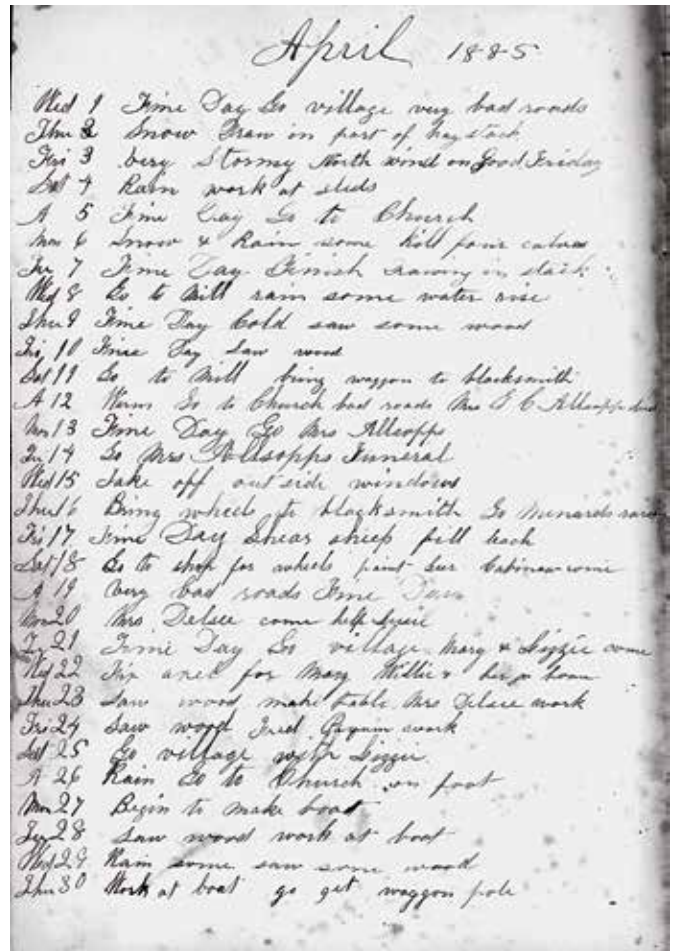 April 1885
Wed 1 Fine Day Go village very bad roads
Thu 2 Snow Draw in part of hay stack
Fri 3 Very Stormy North wind on Good Friday
Sat 4 Rain work at sleds
A 5 Fine Day Go to Church
Mon 6 Snow & Rain some Kill four calves
Tu 7 Fine Day Finish drawing in stack
Wed 8 Go to Mill rain some water rise
Thu 9 Fine Day Cold saw some wood
Fri 10 Fine Day Saw wood
Sat 11 Go to Mill bring waggon to blacksmith
A 12 Warm Go to Church bad roads Mrs Allsopp
Mon 13 Fine Day Go Mrs Allsopp
Tu 14 Go Mrs Allsopps Funeral
Wed 15 Take off out side windows
Thu 16 Bring wheels to blacksmith Go
Fri 17 Fine Day Shear sheep
Sat 18 Go to shop for wheels paint
A 19 Very bad roads Fine Day
Mon 20 Mrs Delsee come help
Tu 21 Fine Day Go village Mary & Lizzie come
Wed 22 Fix for Mary Willie &
Thu 23 Saw wood make table Mrs Delsee work
Fri 24 Saw wood Fred work
Sat 25 Go village with Lizzie
A 26 Rain Go to Church on foot
Mon 27 Begin to make boat
Tu 28 Saw wood work at boat
Wed 29 Rain some saw some wood
Thu 30 Work at boat go get waggon pole